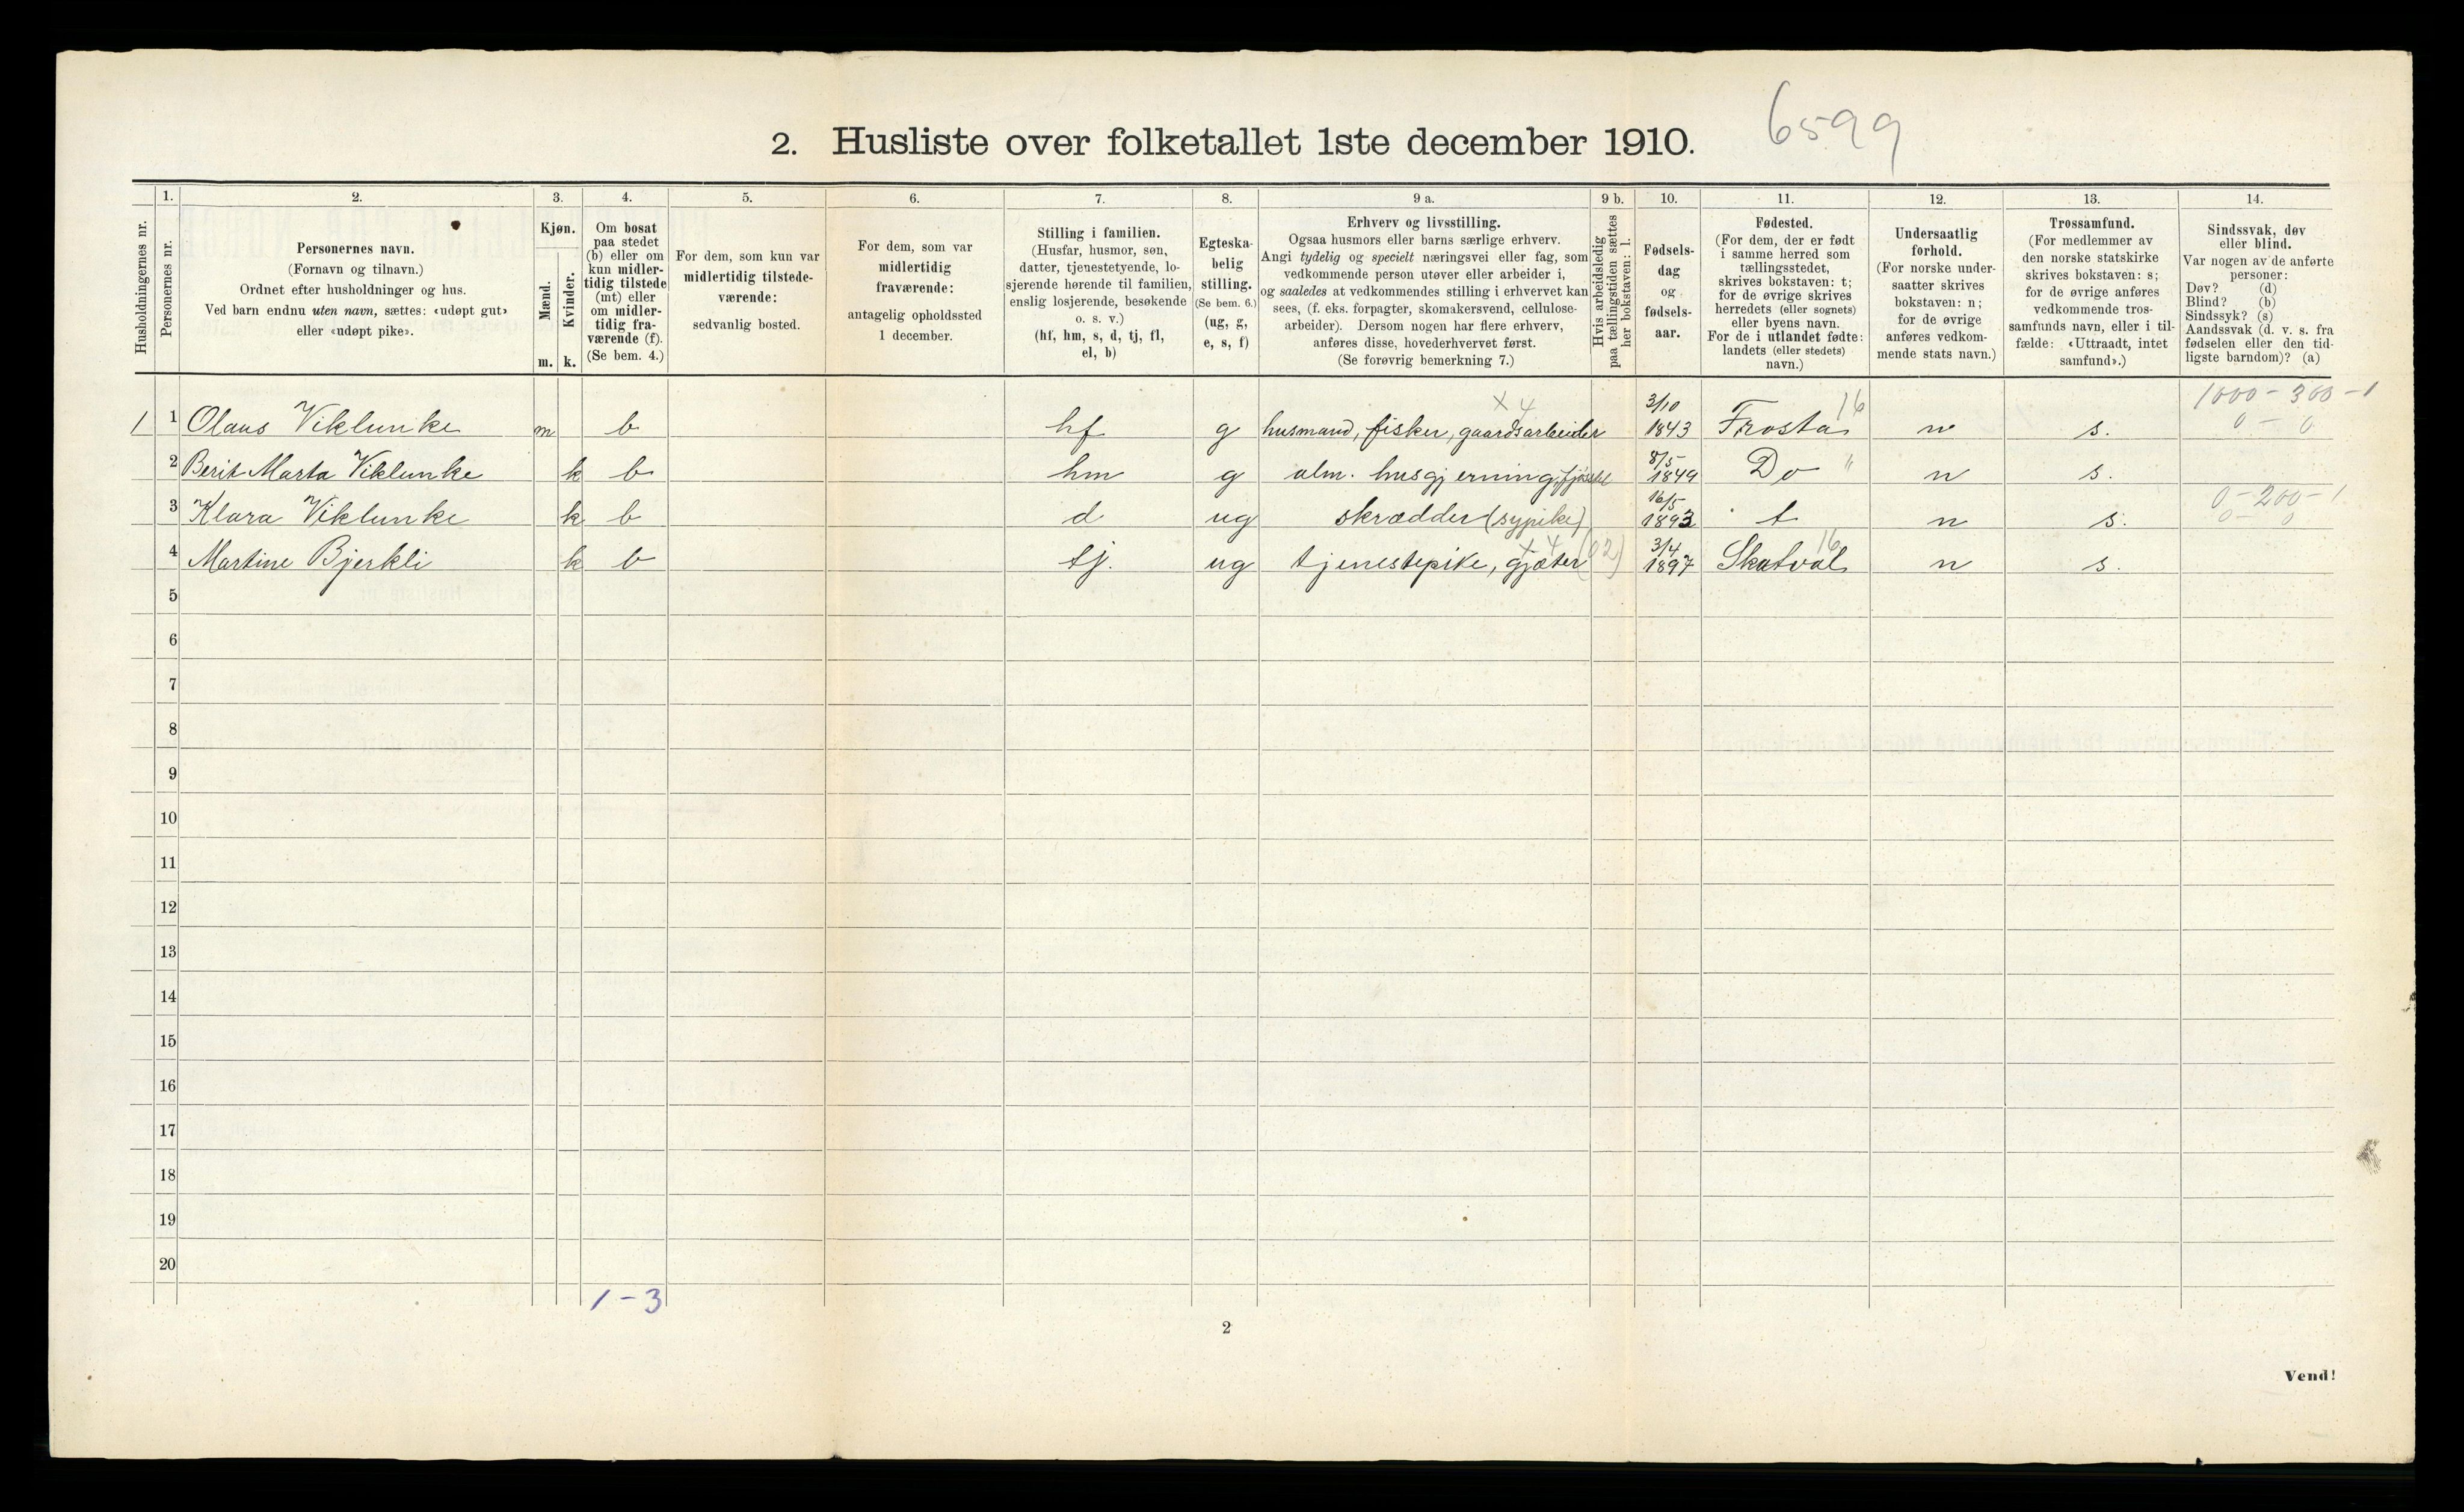 2. Husliste over folketallet 1ste december 1910.
6599
Husholdningernes nr.
1.
Personernes nr.
2.
Personernes navn.
(Fornavn og tilnavn.)
Ordnet efter husholdninger og hus.
Ved barn endnu uten navn, sættes: «udøpt gut»
eller «udøpt pike».
3.
Kjøn.
Mænd.
Kvinder.
m. k.
4.
Om bosat
paa stedet
(b) eller om
kun midler-
tidig tilstede
(mt) eller
om midler-
tidig fra-
værende (f).
(Se bem. 4.)
5.
For dem, som kun var
midlertidig tilstede-
værende:
sedvanlig bosted.
6.
For dem, som var
midlertidig
fraværende:
antagelig opholdssted
1 december.
7.
Stilling i familien.
(Husfar, husmor, søn,
datter, tjenestetyende, lo-
sjerende hørende til familien,
enslig losjerende, besøkende
o. s. v.)
(hf, hm, s, d, tj, fl,
el, b)
8.
Egteska-
belig
stilling.
(Se bem. 6.)
(ug, g,
e, s, f)
9 a.
Erhverv og livsstilling.
Ogsaa husmors eller barns særlige erhverv.
Angi tydelig og specielt næringsvei eller fag, som
vedkommende person utøver eller arbeider i,
og saaledes at vedkommendes stilling i erhvervet kan
sees, (f. eks. forpagter, skomakersvend, cellulose-
arbeider). Dersom nogen har flere erhverv,
anføres disse, hovederhvervet først.
(Se forøvrig bemerkning 7.)
9 b.
Hvis arbeidsledig
paa tællingstiden sættes
her bokstaven: l.
10.
Fødsels-
dag
og
fødsels-
aar.
11.
Fødested.
(For dem, der er født
i samme herred som
tællingsstedet,
skrives bokstaven: t;
for de øvrige skrives
herredets (eller sognets)
eller byens navn.
For de i utlandet fødte:
landets (eller stedets)
navn.)
12.
Undersaatlig
forhold.
(For norske under-
saatter skrives
bokstaven: n;
for de øvrige
anføres vedkom-
mende stats navn.)
13.
Trossamfund.
(For medlemmer av
den norske statskirke
skrives bokstaven: s;
for de øvrige anføres
vedkommende tros-
samfunds navn, eller i til-
fælde: «Uttraadt, intet
samfund».)
14.
Sindssvak, døv
eller blind.
Var nogen av de anførte
personer:
Døv? (d)
Blind? (b)
Sindssyk? (s)
Aandssvak (d. v. s. fra
fødselen eller den tid-
ligste barndom)? (a)
x 4 16 1000-300-1
1 1 Olaus Viklunke m b hf g husmand, fisker, gaardsarbeider 3/10 1843 Frosta n s. 0-0
2 Berit Marta Viklunke k b hm g alm. husgjerning, fjøsstel 8/5 1849 Do " n s.
0-200-1
3 Klara Viklunke k b d ug skrædder (sypike) 16/5 1893 t n s. 0-0
x 4 (02) 16
4 Martine Bjerkli k b tj. ug tjenestepike, gjæter 3/4 1897 Skatval n s.
5
6
7
8
9
10
11
12
13
14
15
16
17
18
19
20
1-3
2
Vend!